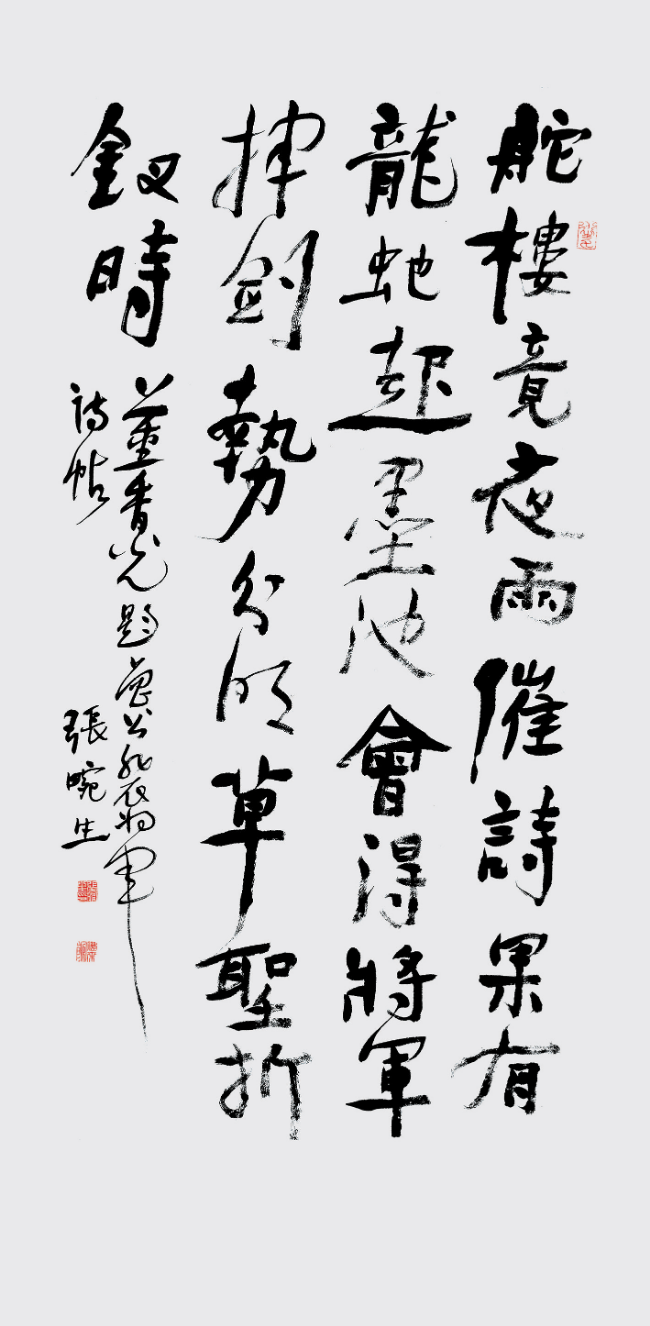 舵樓竟夜雨催詩果有
龍蛇起墨池會得將軍
揮劍勢分明草聖折
釵時
董香光題魯公裴將軍
詩帖
張畹生